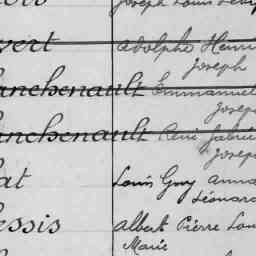 Joseph Louis
vert Adolphe Henri
Joseph
anchenault Emmanuel
Joseph
anchenault René Gabriel
Joseph
at Louis Guy Arma
Léonard
essis Albert Pierre Lou
Marie